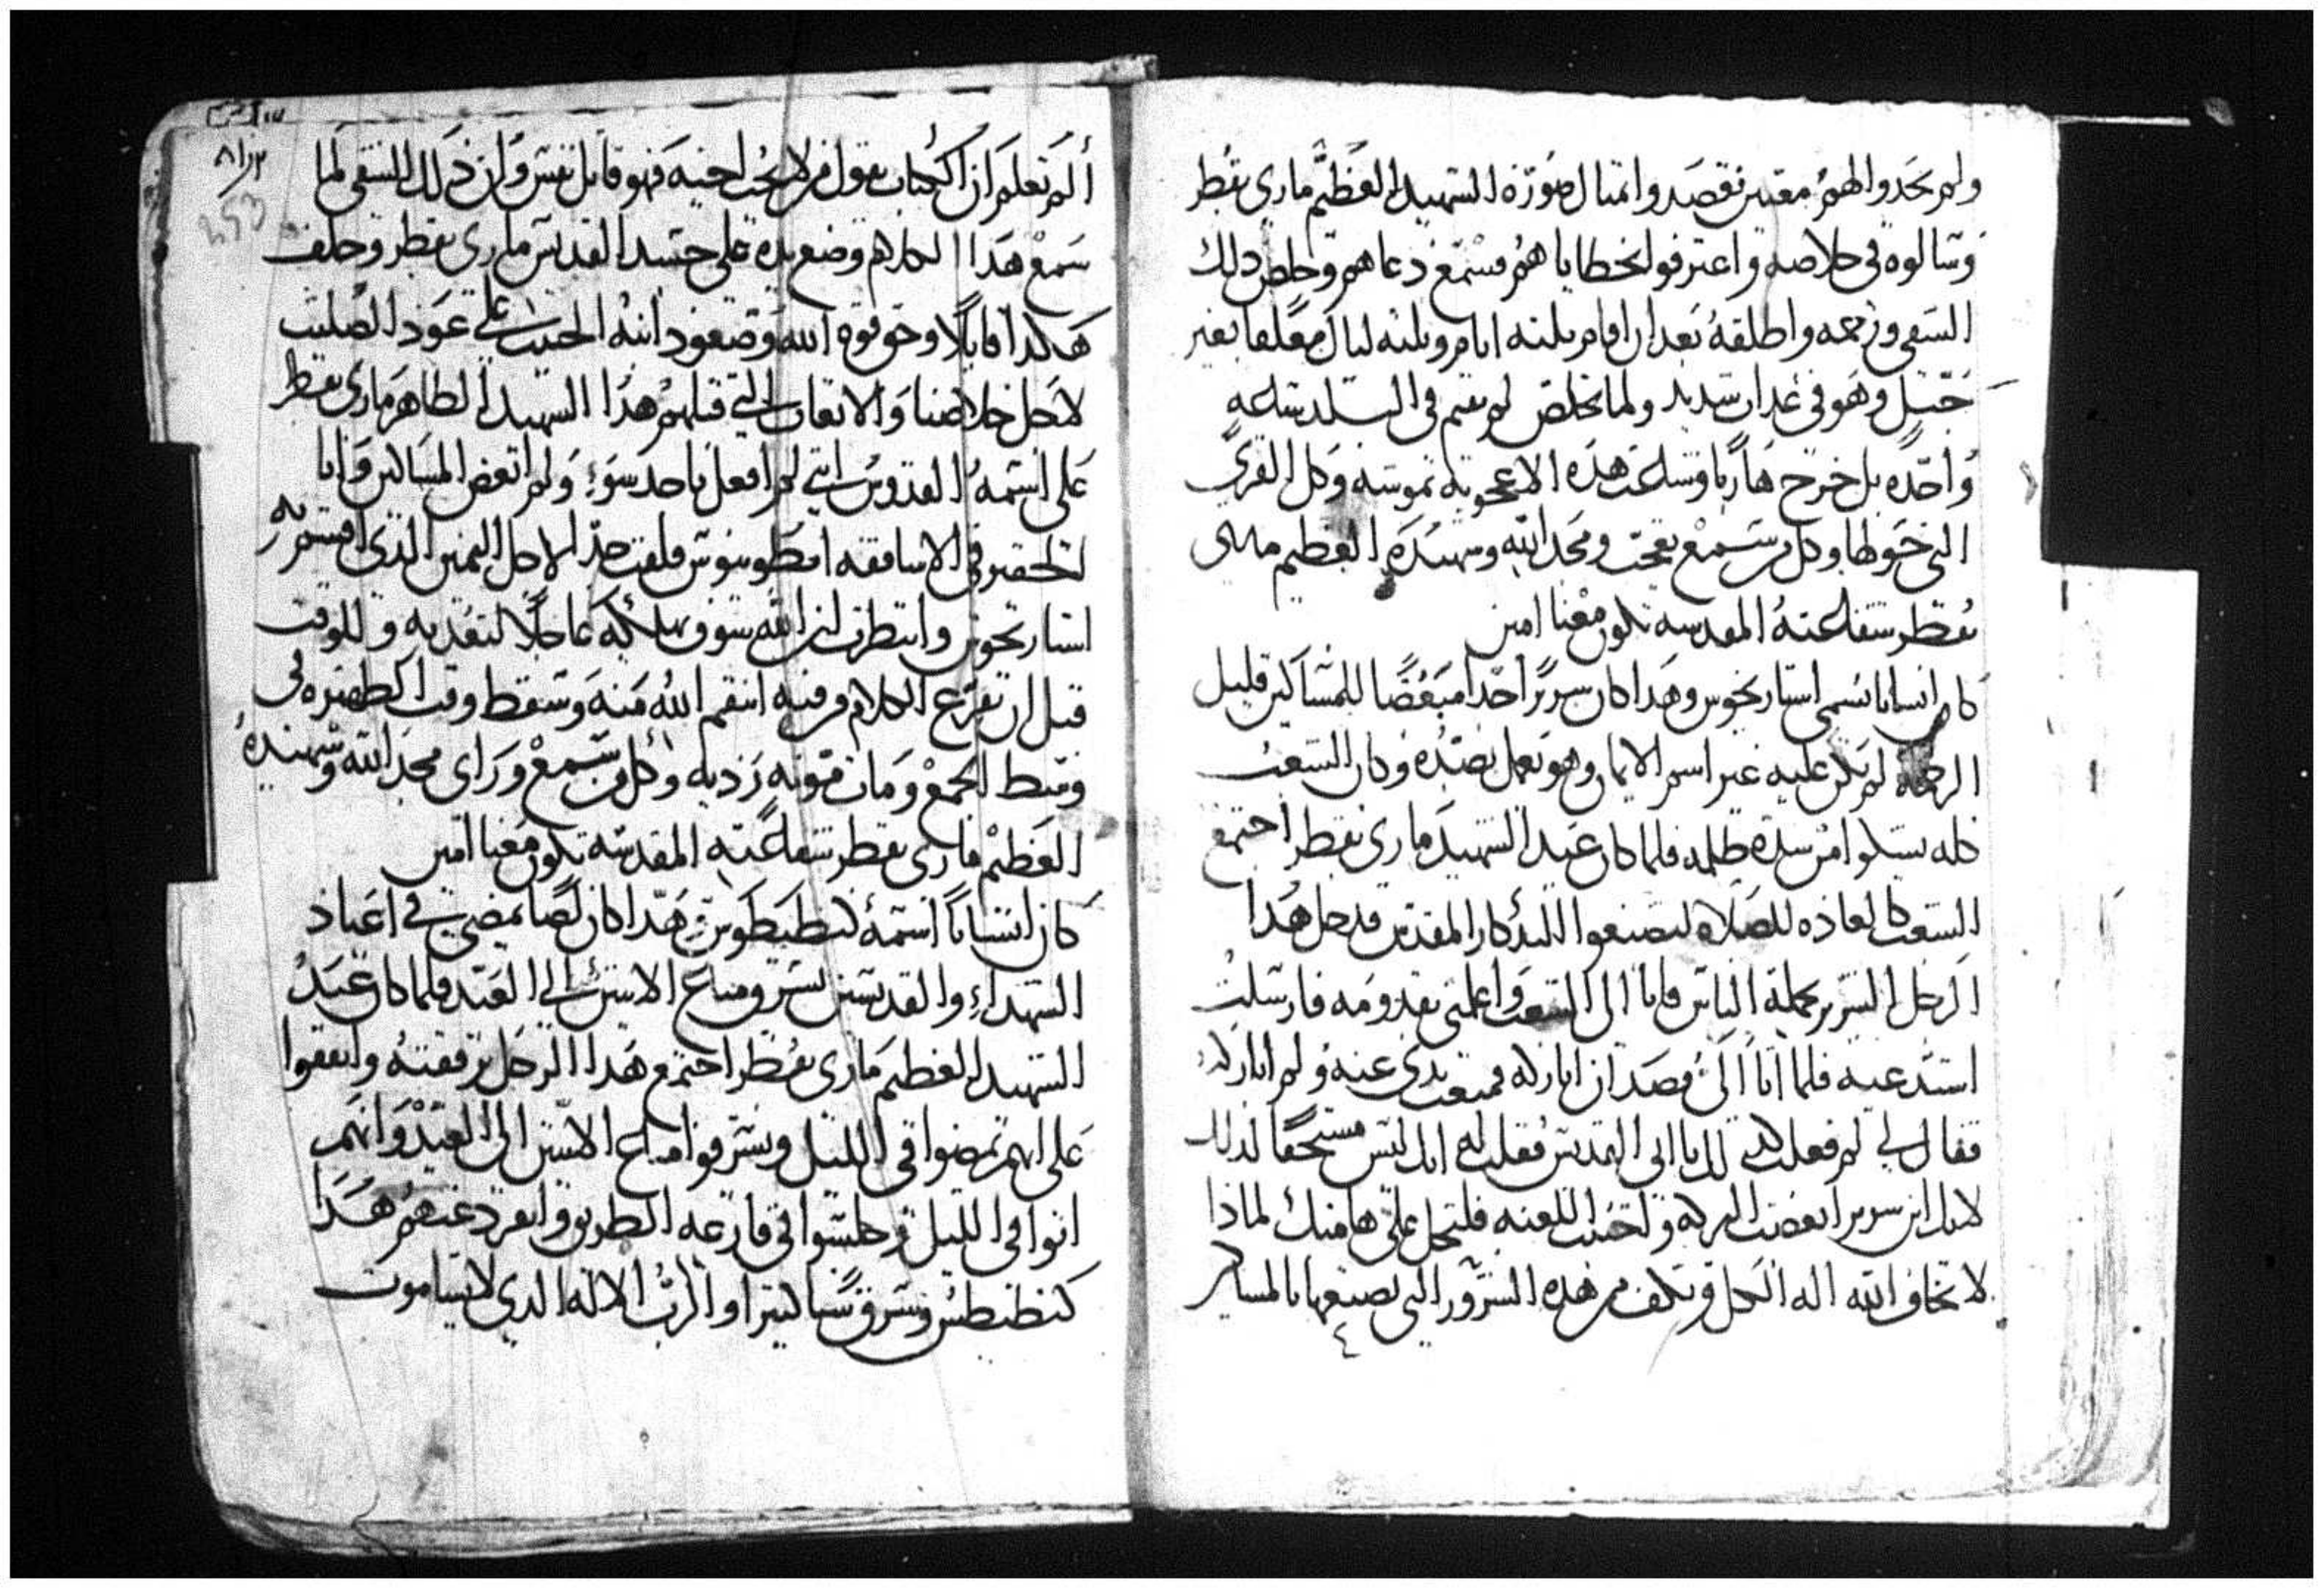 ولم يجدوا لهم معين فقصدوا تمثال صورة الشهيد العظيم ماري بقطر
وسالوه في خلاصه واعترفوا بخطاياهم فسمع دعاهم وخلص ذلك
الشقي ورحمه واطلقه بعد ان اقام ثلثه ايام وثلثه ليال معلقا بغير
حبل وهو في عذاب شديد ولما تخلص لم يقم في البلد ساعه
واحده بل خرج هاربا وشاعت هذه الاعجوبه بموشه وكل القرى
التي حولها وكل من سمع تعجب ومجد الله وشهيده العظيم ماري
بقطر شفاعته المقدسه تكون معنا امين
كان انسانا يسمى استاريخوس وهذا كان شرير احدا مبغضا للمساكين قليل
الرحمة لم يكن عليه غير اسم الايمان وهو يعمل بضده وكان الشعب
كله يشكوا من شدة ظلمه فلما كان عيد الشهيد ماري بقطر اجتمع
الشعب كالعاده للصلاه ليصنعوا التذكار المقدس فدخل هذا
الرجل الشرير بجملة الناس فاتا الى الشعب واعلمني بقدومه فارسلت
استدعيه فلما اتا الي قصد ان اباركه فمنعت يدي عنه ولم اباركه
فقال لي لم فعلت بي ذلك يا ابي القديس فقلت له انك ليس مستحقا لذلك
لانك ابن شرير ابغضت البركه واحببت اللعنه فلتحل عليك هامنك لماذا
لا تخاف الله اله الكل وتكف من هذه الشرور التي تصنعها بالمساكين
٤
ألم تعلم ان الكتاب يقول من لا يحب اخيه فهو قاتل نفس وان ذلك الشقي لما
سمع هذا الكلام وضع يده على جسد القديس ماري بقطر وحلف
هكذا قايلا وحق قوة الله وصعود ابنه الحبيب على عود الصليب
لاجل خلاصنا والاتعاب التي قبلهم هذا الشهيد الطاهر ماري بقطر
على اسمه القدوس انني لم افعل باحد سوء ولم ابغض المساكين وانا
الحقير في الاساقفه قلقت جدا لاجل اليمين الذي اقسم به
استاريخوس وانتظرت ان الله سوف يهلكه عاجلا لتعديه وللوقت
قبل ان يفرغ الكلام من فيه انتقم الله منه وسقط وقت الظهيره في
وسط الجمع ومات موته رديه وكل من سمع وراى مجد الله وشهيده
العظيم ماري بقطر شفاعته المقدسه تكون معنا امين
كان انسانا اسمه كنطيطوس وهذا كان لصا يمضي في اعياد
الشهداء والقديسين يسرق متاع الاتين الى العيد فلما كان عيد
الشهيد العظيم ماري بقطر اجتمع هذا الرجل برفقته واتفقوا
على انهم يمضوا في الليل ويسرقوا متاع الاتين الى العيد وانهم
اتوا في الليل وجلسوا في قارعه الطريق وانفرد عنهم هذا
كنطيطس وسرق والرب الاله الذي لا يشا موت